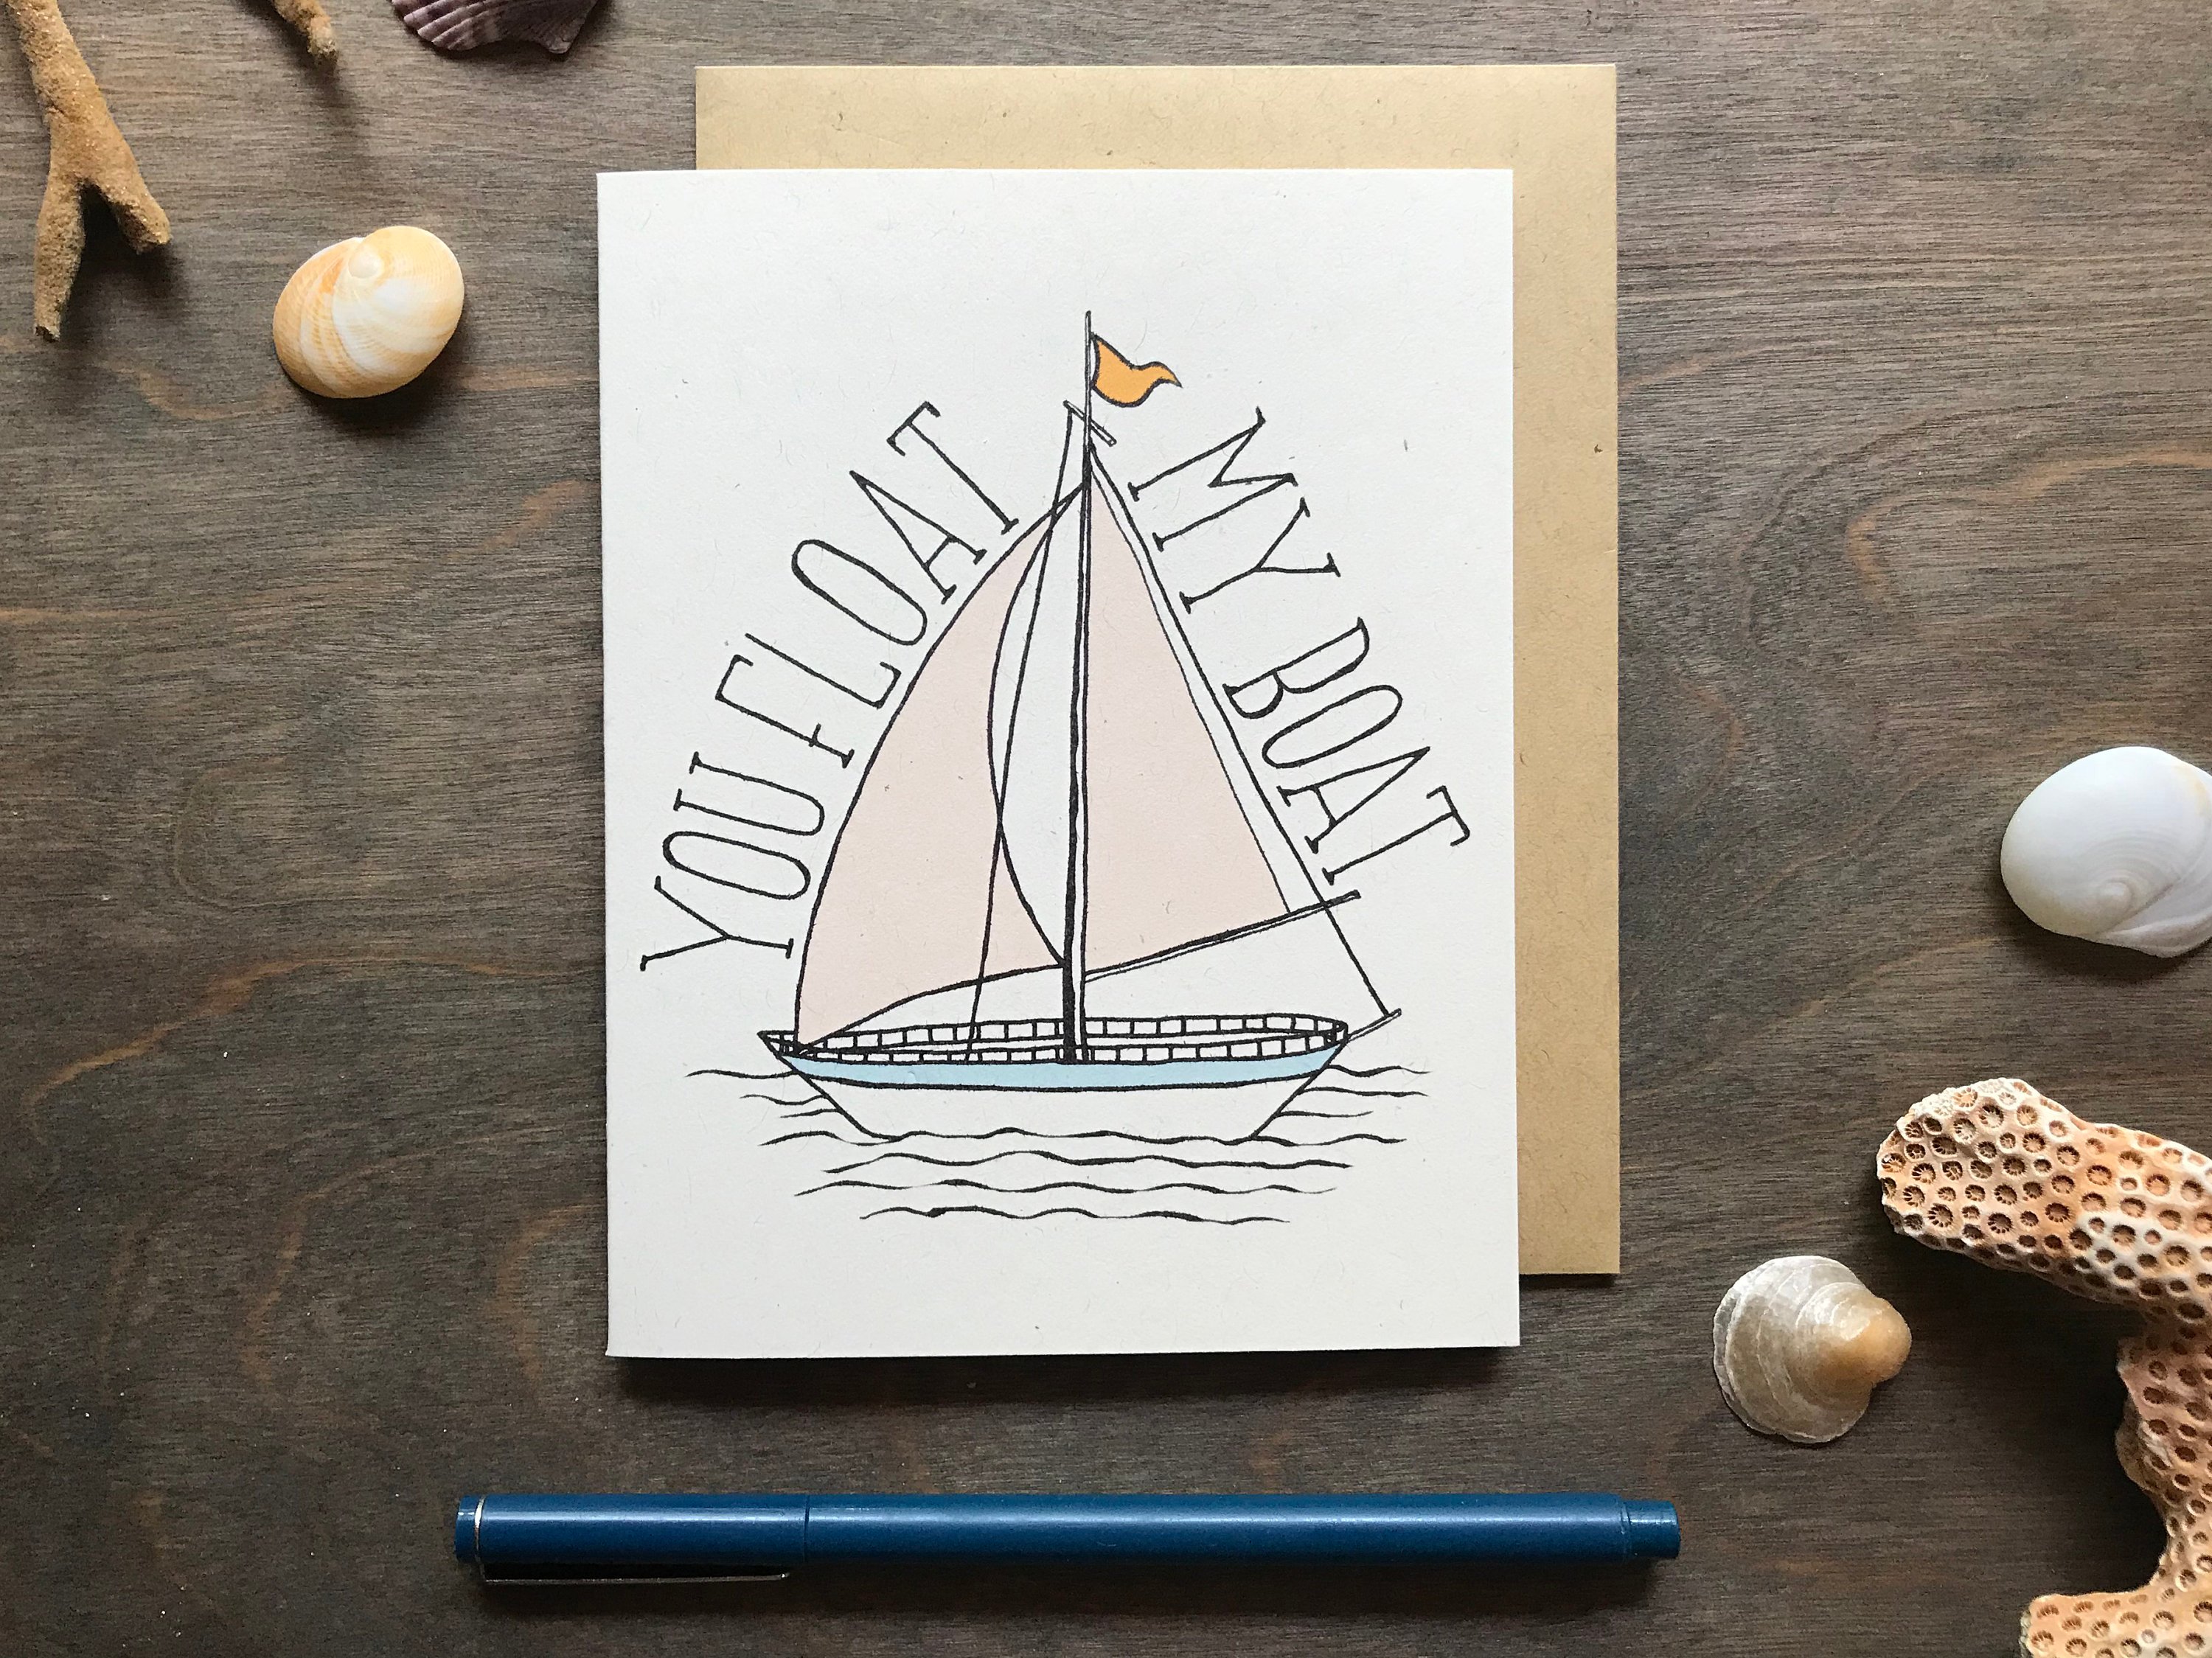 YOU FLOAT
MY BOAT